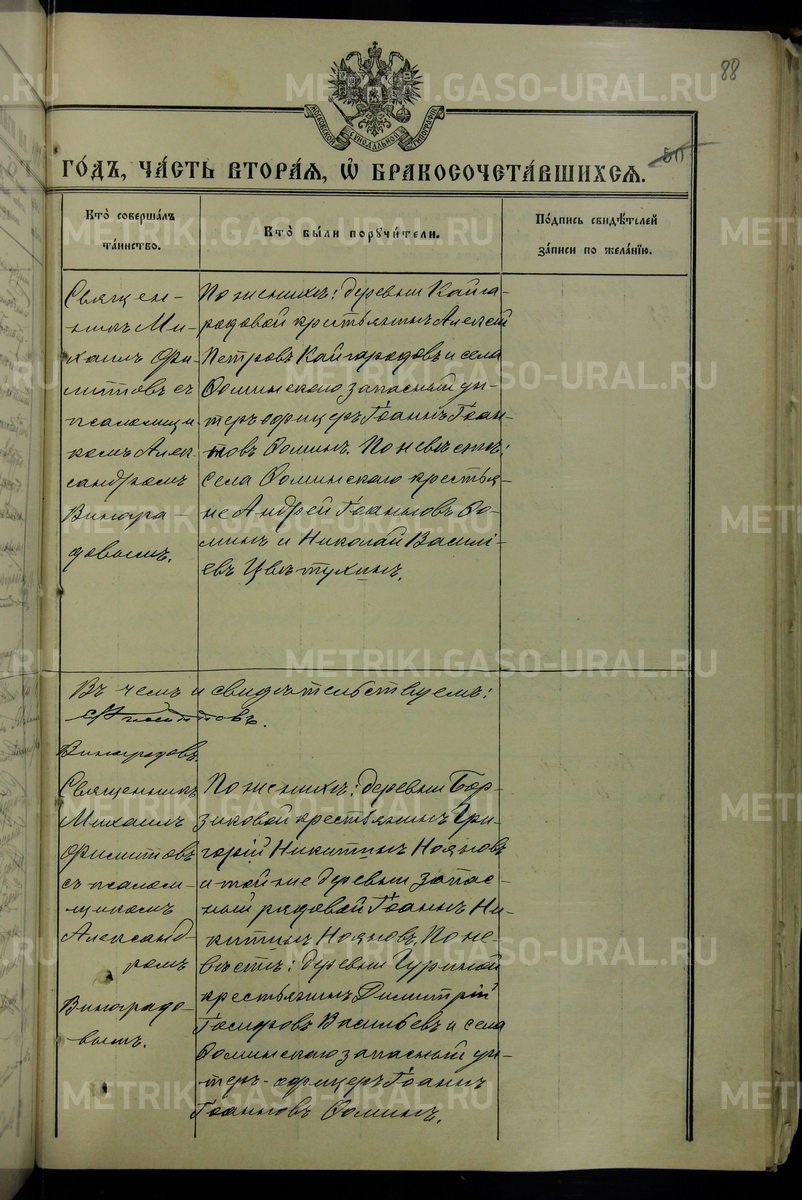 88
МОСКОВСКОЙ СѴНОДАЛЬНОЙ ТИПОГРАФІИ
50
ГО́ДЪ, ЧА́СТЬ ВТОРА́Ѧ, Ѽ БРАКОСОЧЕТА́ВШИХСѦ.
Кто̀ соверша́лъ
та́инство.
Кто̀ бы́ли порꙋчи́тели.
По́дпись свидѣ́телей
за́писи по жела́нїю.
Священ-
никъ Ми-
хаилъ Фи-
литовъ съ
псаломщи
комъ Алек
сандромъ
Виногра-
довымъ.
По женихѣ: деревни Кайга-
родовой крестьянинъ Алексѣй
Петровъ Кайгародовъ и села
Ѳоминскаго запасный ун-
теръ офицеръ Іоаннъ Іоан-
новъ Ѳоминъ. По невѣстѣ:
села Ѳоминскаго крестья-
не Андрей Іоанновъ Ѳо-
минъ и Николай Василі-
евъ Цвѣтухинъ.
Въ чемъ и свидѣтельствуемъ:
Виноградовъ.
Священникъ
Михаилъ
Филитовъ
съ псалом-
щикомъ
Александ-
ромъ
Виноградо-
вымъ.
По женихѣ: деревни Бор-
зиковой крестьянинъ Гри-
горій Никитинъ Нояновъ
и той же деревни запас-
ный рядовой Іоаннъ Ни-
китинъ Нояновъ. По не-
вѣстѣ: деревни Гуриной
крестьянинъ Димитрій
Іосифовъ Васильевъ и села
Ѳоминскаго запасный ун-
теръ-офицеръ Іоаннъ
Іоанновъ Ѳоминъ.
METRIKI.GASO-URAL.RU